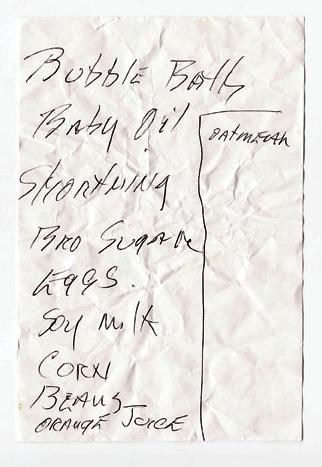 Bubble Bath
Baby Oil
Shortning
Bro Sugar
Eggs
Soy Milk
Corn
Beans
Orange Juice
Oatmeal